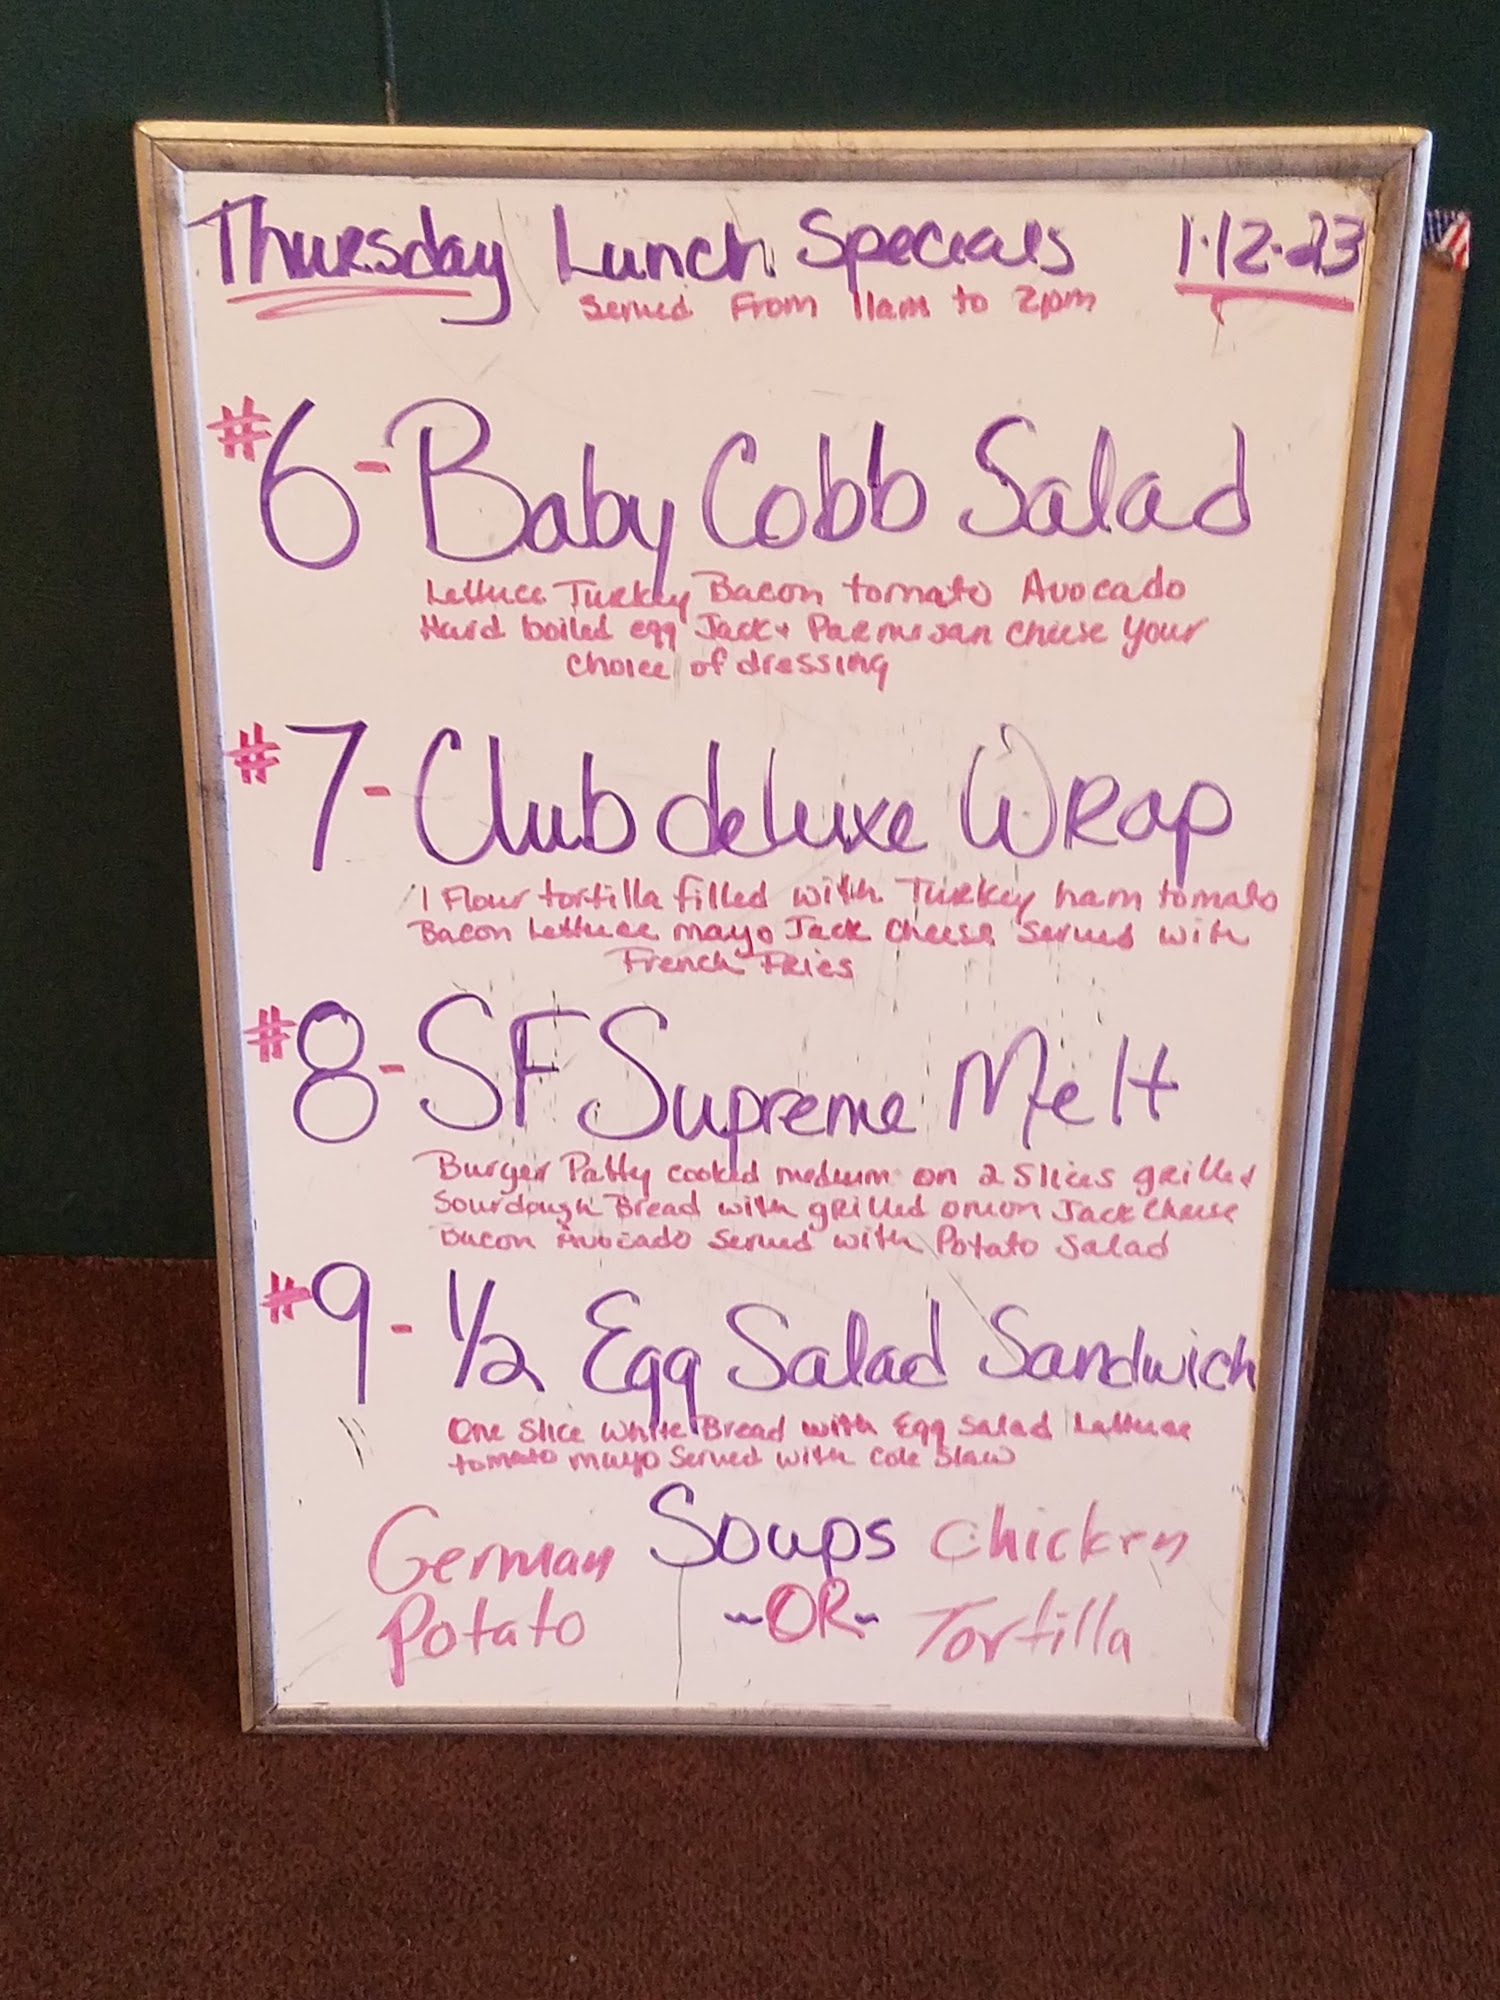 Thursday Lunch Specials 1.12.23
Served From 11am to 2pm
#6 - Baby Cobb Salad
Lettuce Turkey Bacon tomato Avocado
Hard boiled egg Jack + Parmesan cheese Your
choice of dressing
#7 - Club deluxe Wrap
1 Flour tortilla filled with Turkey ham tomato
Bacon Lettuce mayo Jack Cheese served with
French Fries
#8 - SF Supreme Melt
Burger Patty cooked medium on 2 slices grilled
Sourdough Bread with grilled onion Jack Cheese
Bacon Avocado Served with Potato Salad
#9 - 1/2 Egg Salad Sandwich
One slice White Bread with Egg Salad Lettuce
tomato mayo Served with Cole Slaw
German Soups Chicken
Potato ~OR~ Tortilla